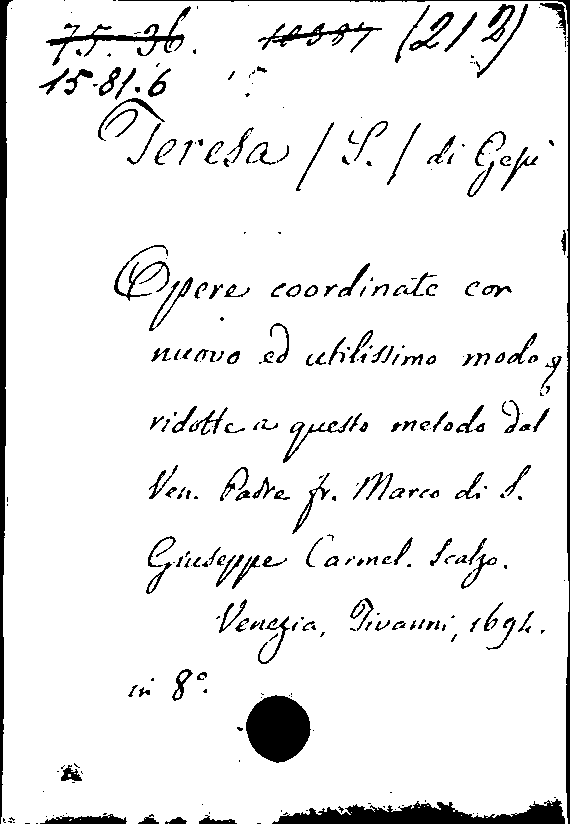 75. 36. 10387 (212)
15.81.6
Teresa / S. / di Gesù
Opere coordinate con
nuovo ed utilissimo modo
ridotte a questo metodo dal
Ven. Padre fr. Marco di S.
Giuseppe Carmel. Scalzo.
Venezia, Tivanni, 1694.
in 8°.